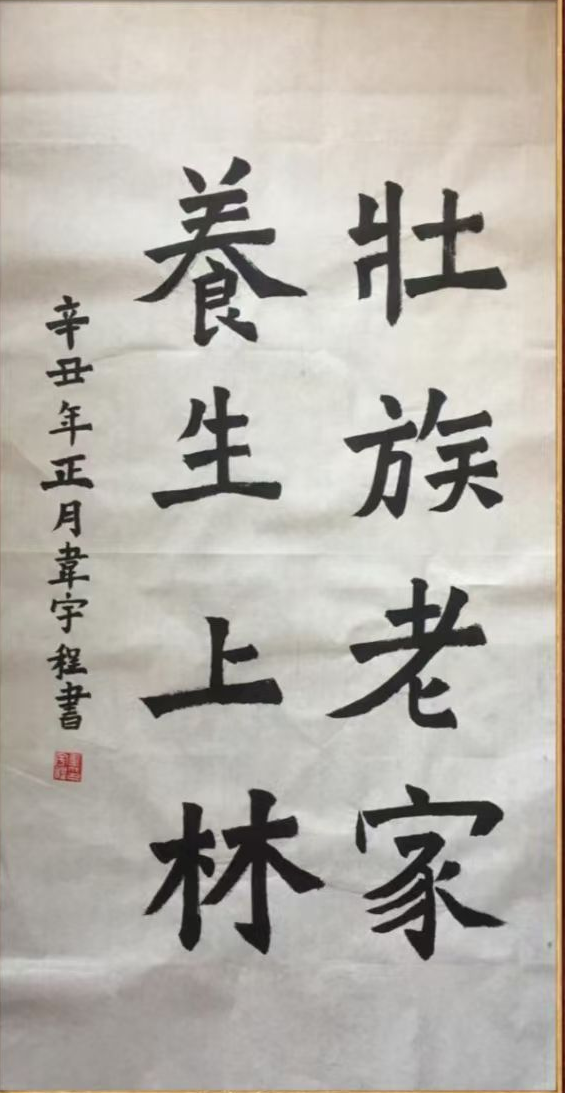 壯族老家
養生上林
辛丑年正月韋宇程書